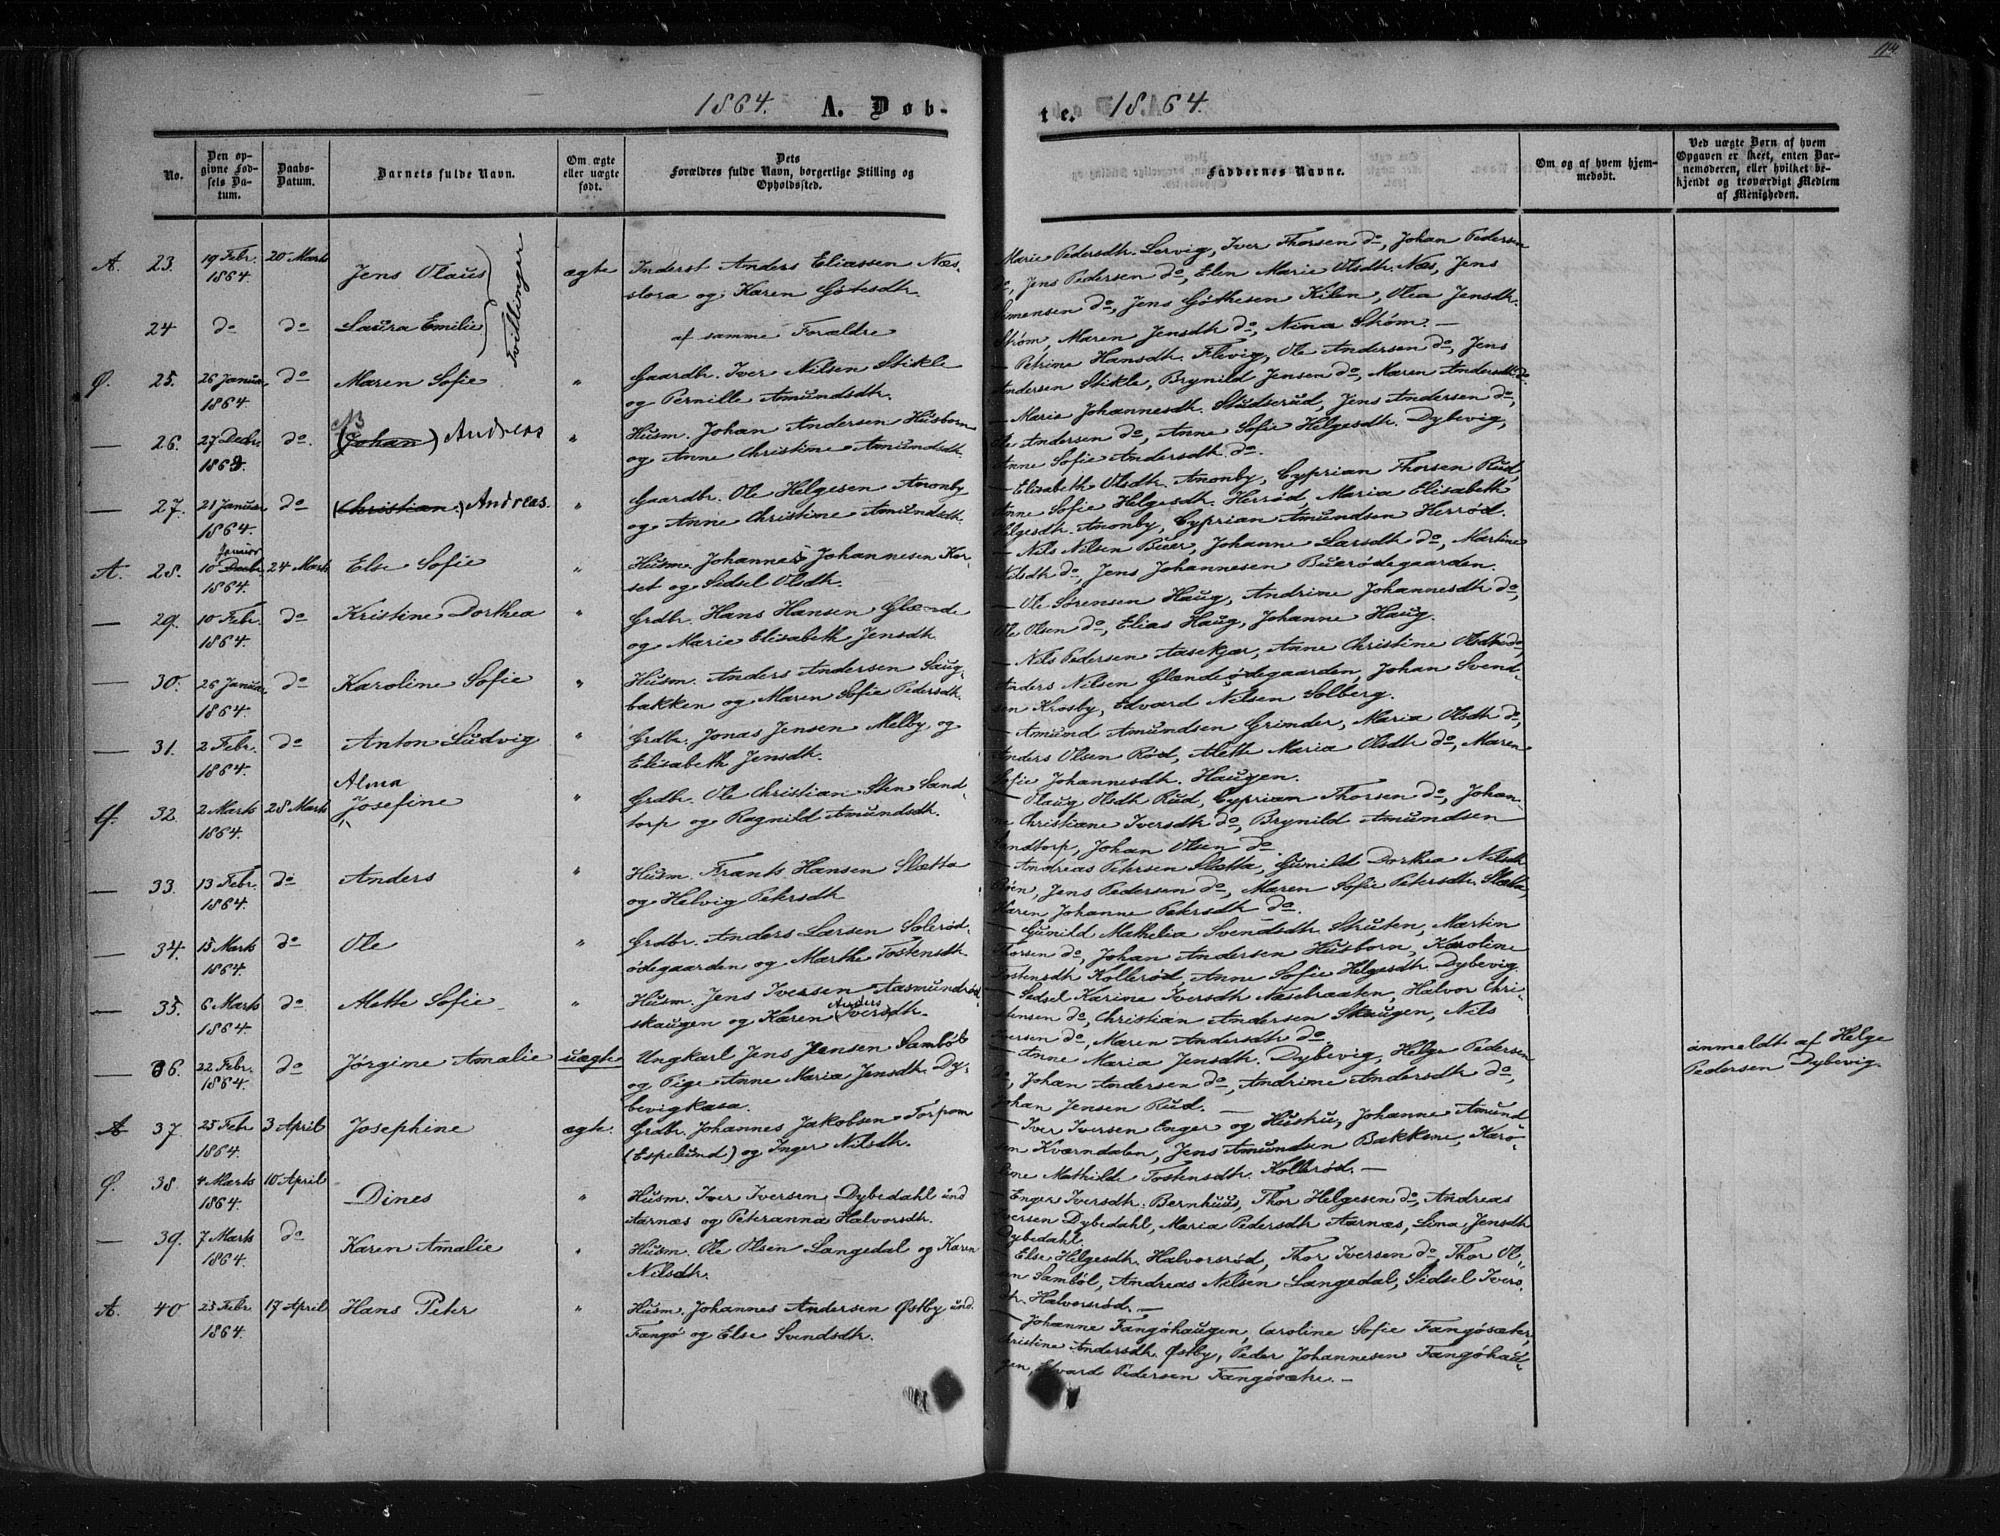 1864. A. Døb-
No.
Den op-
givne Fød-
sels Da-
tum.
Daabs-
Datum.
Barnets fulde Navn.
Om ægte
eller uægte
født.
Dets
Forældres fulde Navn, borgerlige Stilling og
Opholdssted.
A. 23. 19 Febr. 1864. 20 Marts Jens Olaus ægte Inderst Anders Eliassen Næs-
slora og Karen Götesdtr.
Tvillinger
24 do do Laura Emilie af samme Forældre
Ø. 25. 26 Januar 1864. do Maren Sofie " Gaardbr. Iver Nilsen Stikle
og Pernille Amundsdtr.
NB
— 26. 27 Decbr. 1863. do. (Johan) Andreas " Husm. Johan Andersen Husborn
og Anne Christine Amundsdtr.
— 27. 21 Januar 1864. do (Christian) Andreas. " Gaardbr. Ole Helgesen Anonby
og Anne Christine Amundsdtr.
Januar
A. 28. 10 Decbr. 1864. 24 Marts Else Sofie " Husm. Johannes Johannesen Kor-
set og Sidsel Olsdtr.
— 29. 10 Febr. 1864. do Kristine Dorthea " Grdbr. Hans Hansen Glænde
og Marie Elisabeth Jensdtr.
— 30. 26 Januar 1864. do Karoline Sofie " Husm. Anders Andersen Saug-
bakken og Maren Sofie Pedersdtr.
— 31. 2 Febr. 1864. do Anton Ludvig " Grdbr. Jonas Jensen Melby og
Elisabeth Jensdtr.
Alma
Ø. 32. 2 Marts 1864. 28 Marts Josefine " Grdbr. Ole Christian Sten Sand-
torp og Ragnild Amundsdtr.
— 33. 13 Febr. 1864. do Anders " Husm. Frants Hansen Sletta
og Helvig Petersdtr
— 34. 15 Marts 1864. do Ole " Grdbr. Anders Larsen Solerød-
ødegaarden og Marthe Tostensdtr.
— 35. 6 Marts 1864. do Alette Sofie " Husm. Jens Iversen Aasmundrød-
Anders
skaugen og Karen (Ivers)dtr.
— 36. 22 Febr. 1864. do Jörgine Amalie uægte Ungkarl Jens Jensen Sambøl
og Pige Anne Maria Jensdtr. Dy-
bevigkasa.
A 37. 25 Febr 1864. 3 April Josephine ægte. Grdbr. Johannes Jakobsen Torpom
(Espelund) og Inger Nilsdtr.
Ø. 38. 4 Marts 1864. 10 April Dines " Husm. Iver Iversen Dybedahl und
Aarnæs og Peteranna Halvorsdtr.
— 39. 7 Marts 1864. do Karen Amalie " Husm. Ole Olsen Langedal og Karen
Nilsdtr.
A. 40 23 Febr 1864. 17 April Hans Peter " Husm. Johannes Andersen Østby und.
Fangö og Else Svendsdtr.
te. 1864.
Faddernes Navne.
Om og af hvem hjem-
medøbt.
Ved uægte Børn af hvem
Opgaven er skeet, enten Bar-
nemoderen, eller hvilket be-
kjendt og troværdigt Medlem
af Menigheden.
Marie Pedersdtr. Lervig, Iver Thorsen do, Johan Pedersen
do, Jens Pedersen do, Elen Marie Olsdtr. Næs, Jens
Simensen do, Jens Göthesen Kilen, Olea Jensdtr.
Strøm, Maren Jensdtr do, Nina Strøm. —
— Petrine Hansdtr. Flevig, Ole Andersen do, Jens
Andersen Stikle, Brynild Jensen do, Maren Andersdtr do.
— Maria Johannesdtr. Studserud, Jens Andersen do,
Ole Andersen do, Anne Sofie Helgesdtr. Dybevig,
Anne Sofie Andersdtr. do.
— Elisabeth Olsdtr. Anonby, Cyprian Thorsen Rud,
Anne Sofie Helgesdtr. Herrød, Maria Elisabeth
Helgesdtr. Anonby, Cyprian Amundsen Herrød.
— Nils Nilsen Buer, Johanne Larsdtr do, Martine
Nilsdtr do, Jens Johannesen Buerødegaarden.
— Ole Sørensen Haug, Andrine Johannesdtr do,
Ole Olsen do, Elias Haug, Johanne Haug.
— Nils Pedersen Aasekjær, Anne Christine Olsdtr do,
Anders Nilsen Glændeødegaarden, Johan Svend-
sen Krosby, Edvard Nilsen Solberg.
— Amund Amundsen Grimder, Maria Olsdtr do,
Anders Olsen Rød, Alette Maria Olsdtr do, Maren
Sofie Johannesdtr. Haugen.
— Olaug Olsdtr Rud, Cyprian Thorsen do, Johan-
ne Christiane Iversdtr do, Brynild Amundsen
Sandtorp, Johan Olsen do.
— Andreas Petersen Sletta, Gunild Dorthea Nilsdtr
Röen, Jens Pedersen do, Maren Sofie Petersdtr. Sletta,
Karen Johanne Petersdtr do.
— Gunild Mathelia Svendsdtr. Struten, Martin
Thorsen do, Johan Andersen Husborn, Karoline
Tostensdtr Kollerød, Anne Sofie Helgesdtr. Dybevig.
— Sidsel Karine Iversdtr Næsebraaten, Halvor Chri-
stensen do, Christian Andersen Skaugen, Nils
Iversen do, Maren Andersdtr do.
— Anne Maria Jensdtr. Dybevig, Helge Pedersen
do, Johan Andersen do, Andrine Andersdtr do,
Johan Jensen Rud. —
anmeldt af Helge
Pedersen Dybevig.
— Iver Iversen Enger og Hustru, Johanne Amund
sen Kværndalen, Jens Amundsen Bakkene, Karo-
line Mathilde Tostensdtr. Kollerød. —
— Enger Iversdtr. Bernhuus, Thor Helgesen do, Andreas
Iversen Dybedahl, Maria Pedersdtr Aarnæs, Lina Jensdtr
Dybedahl.
— Else Helgesdtr. Halvorsrød, Thor Iversen do, Thor Ol-
sen Sambøl, Andreas Nilsen Langedal, Sidsel Ivers
dtr. Halvorsrød. —
— Johanne Fangöhaugen, Caroline Sofie Fangösæter,
Christine Andersdtr. Østby, Peder Johannesen Fangöhau-
gen, Edvard Pedersen Fangösæter. —